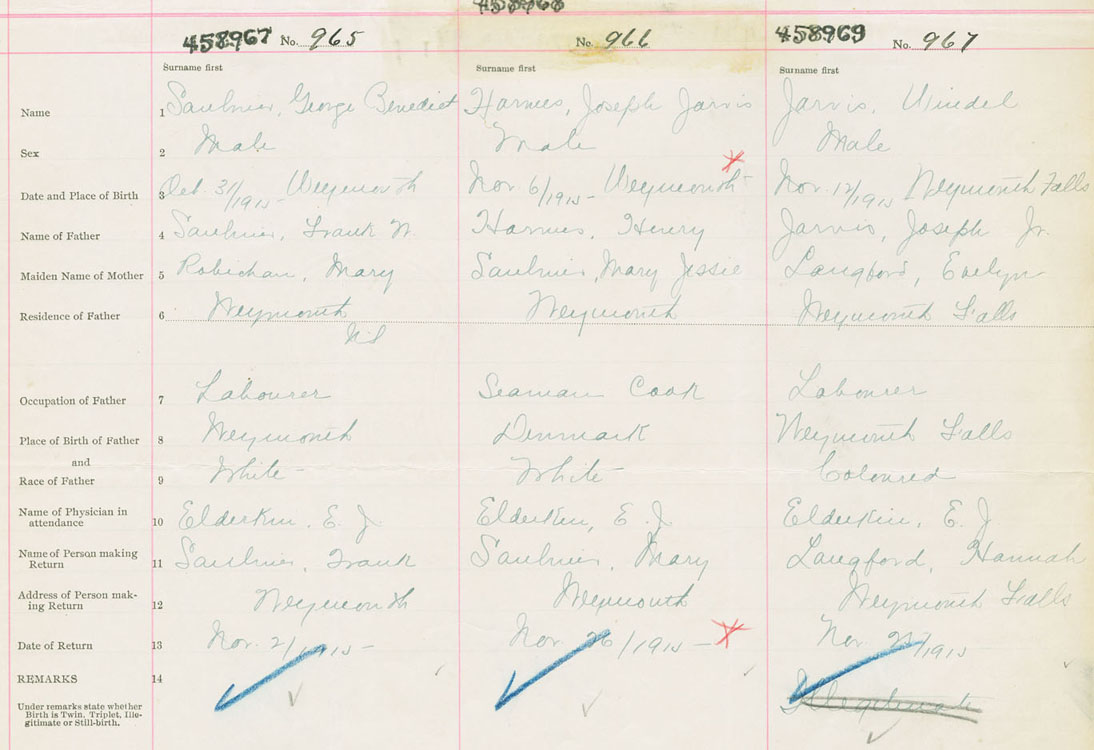 458968
458967 No. 965 No. 966 458969 No. 967
Surname first Surname first Surname first
Name 1 Saulnier, George Benedict Harnies, Joseph Jarvis Jarvis, Windel
Sex 2 Male Male Male
Date and Place of Birth 3 Oct. 31/1915 - Weymouth Nov. 6/1915 - Weymouth Nov. 12/1915 Weymouth Falls
Name of Father 4 Saulnier, Frank W. Harnies, Henry Jarvis, Joseph Jr.
Maiden Name of Mother 5 Robichau, Mary Saulnier, Mary Jessie Langford, Evelyn
Residence of Father 6 Weymouth Weymouth Weymouth Falls
Occupation of Father 7 Labourer Seaman Cook Labourer
Place of Birth of Father 8 Weymouth Denmark Weymouth Falls
and
Race of Father 9 White White Coloured
Name of Physician in
attendance 10 Elderkin, E. J. Elderkin, E. J. Elderkin, E. J.
Name of Person making
Return 11 Saulnier, Frank Saulnier, Mary Langford, Hannah
Address of Person mak-
ing Return 12 Weymouth Weymouth Weymouth Falls
Date of Return 13 Nov. 2/1915 - Nov. 26/1915 - Nov. /1915
REMARKS 14
Illegitimate
Under remarks state whether
Birth is Twin. Triplet, Ille-
gitimate or Still-birth.